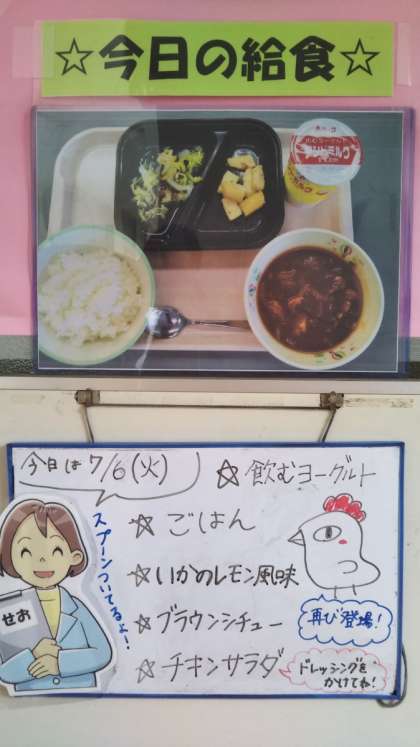 ☆今日の給食☆
今日は7/6(火)
☆飲むヨーグルト
☆ごはん
☆いかのレモン風味
☆ブラウンシチュー
☆チキンサラダ
スプーンついてるよ!
せお
再び登場!
ドレッシングを
かけてね!